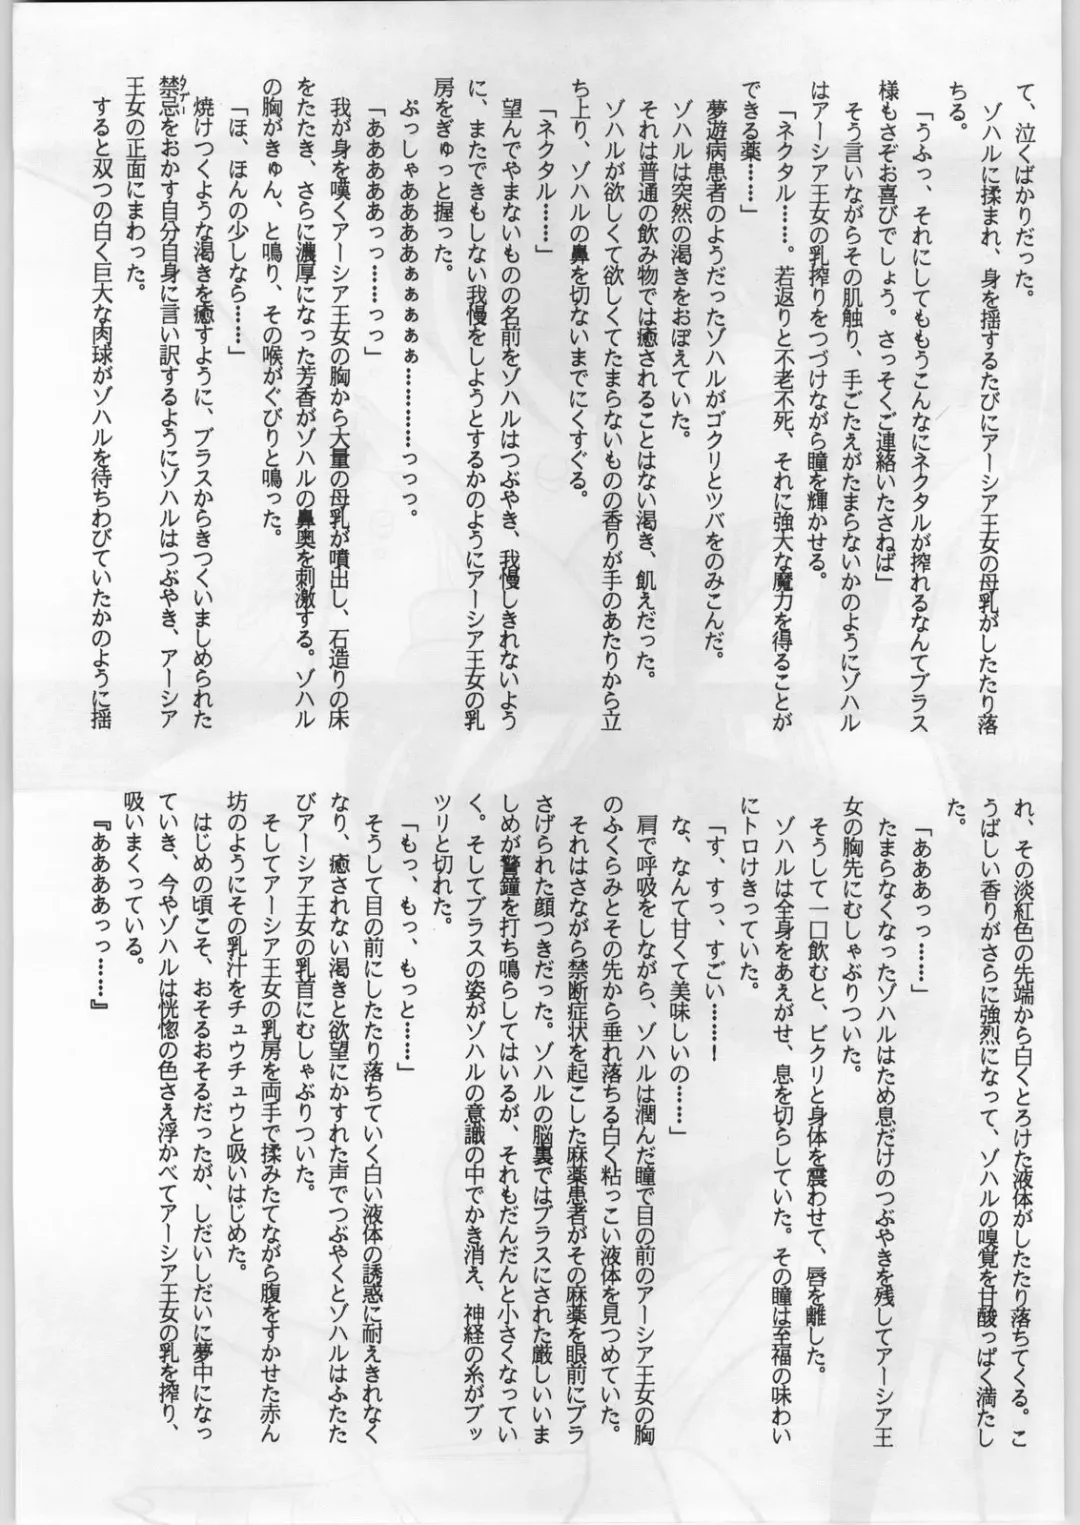 て、泣くばかりだった。
ゾハルに揉まれ、身を揺するたびにアーシア王女の母乳がしたたり落
ちる。
「うふっ、それにしてももうこんなにネクタルが搾れるなんてブラス
様もさぞお喜びでしょう。さっそくご連絡いたさねば」
そう言いながらその肌触り、手ごたえがたまらないかのようにゾハル
はアーシア王女の乳搾りをつづけながら瞳を輝かせる。
「ネクタル……。若返りと不老不死、それに強大な魔力を得ることが
できる薬……」
夢遊病患者のようだったゾハルがゴクリとツバをのみこんだ。
ゾハルは突然の渇きをおぼえていた。
それは普通の飲み物では癒されることはない渇き、飢えだった。
ゾハルが欲しくて欲しくてたまらないものの香りが手のあたりから立
ち上り、ゾハルの鼻を切ないまでにくすぐる。
「ネクタル……」
望んでやまないものの名前をゾハルはつぶやき、我慢しきれないよう
に、またできもしない我慢をしようとするかのようにアーシア王女の乳
房をぎゅっと握った。
ぷっしゃああああぁぁぁぁぁ…………っっっ。
「ああああああっっ……っっ」
我が身を嘆くアーシア王女の胸から大量の母乳が噴出し、石造りの床
をたたき、さらに濃厚になった芳香がゾハルの鼻奥を刺激する。ゾハル
の胸がきゅん、と鳴り、その喉がぐびりと鳴った。
「ほ、ほんの少しなら……」
焼けつくような渇きを癒すように、ブラスからきつくいましめられた
禁忌をおかす自分自身に言い訳するようにゾハルはつぶやき、アーシア
王女の正面にまわった。
すると双つの白く巨大な肉球がゾハルを待ちわびていたかのように揺
れ、その淡紅色の先端から白くとろけた液体がしたたり落ちてくる。こ
うばしい香りがさらに強烈になって、ゾハルの嗅覚を甘酸っぱく満たし
た。
「あああっっ……」
たまらなくなったゾハルはため息だけのつぶやきを残してアーシア王
女の胸先にむしゃぶりついた。
そうして一口飲むと、ビクリと身体を震わせて、唇を離した。
ゾハルは全身をあえがせ、息を切らしていた。その瞳は至福の味わい
にトロけきっていた。
「す、すっ、すごい……！
な、なんて甘くて美味しいの……」
肩で呼吸をしながら、ゾハルは潤んだ瞳で目の前のアーシア王女の胸
のふくらみとその先から垂れ落ちる白く粘っこい液体を見つめていた。
それはさながら禁断症状を起こした麻薬患者がその麻薬を眼前にブラ
さげられた顔つきだった。ゾハルの脳裏ではブラスにされた厳しいいま
しめが警鐘を打ち鳴らしてはいるが、それもだんだんと小さくなってい
く。そしてブラスの姿がゾハルの意識の中でかき消え、神経の糸がブッ
ツリと切れた。
「もっ、もっ、もっと……」
そうして目の前にしたたり落ちていく白い液体の誘惑に耐えきれなく
なり、癒されない渇きと欲望にかすれた声でつぶやくとゾハルはふたた
びアーシア王女の乳首にむしゃぶりついた。
そしてアーシア王女の乳房を両手で揉みたてながら腹をすかせた赤ん
坊のようにその乳汁をチュウチュウと吸いはじめた。
はじめの頃こそ、おそるおそるだったが、しだいしだいに夢中になっ
ていき、今やゾハルは恍惚の色さえ浮かべてアーシア王女の乳を搾り、
吸いまくっている。
『ああああっっ……』